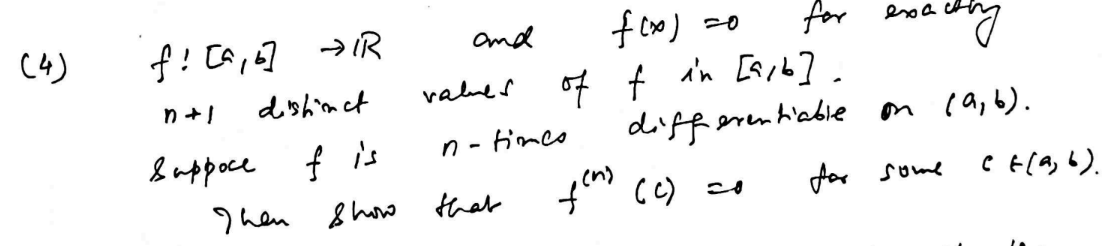 (4) f: [a,b] → ℝ and f(x) = 0 for exactly
n+1 distinct values of f in [a,b].
Suppose f is n-times differentiable on (a,b).
Then show that f^(n) (c) = 0 for some c ∈ (a,b).